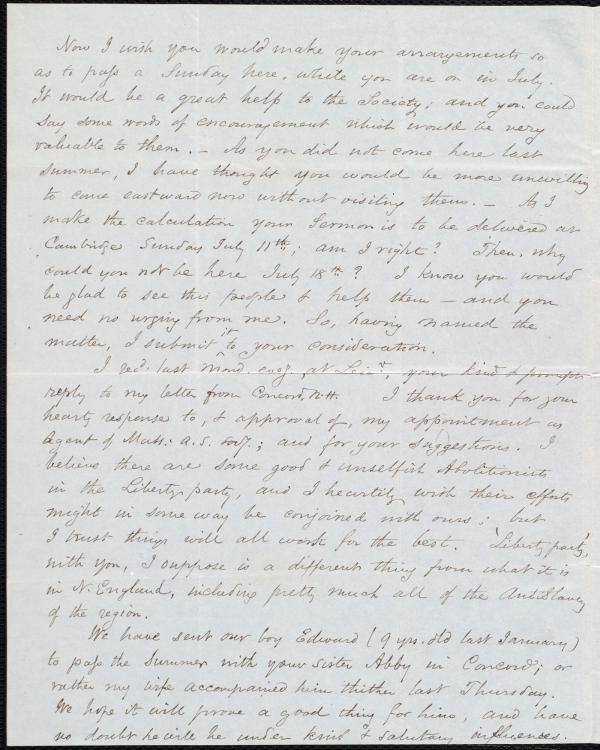 Now I wish you would make your arrangements so
as to pass a Sunday here, while you are on in July.
It would be a great help to the Society; and you could
say some words of encouragement which would be very
valuable to them. – As you did not come here last
summer, I have thought you would be more unwilling
to come eastward now without visiting them. – As I
make the calculation your Sermon is to be delivered at
Cambridge Sunday July 11th; am I right? Then, why
could you not be here July 18th? I know you would
be glad to see this people & help them – and you
need no urging from me. So, having named the
matter, I submit it to your consideration.
I recd. last Mond. eveg. at Leicr., your kind & prompt
reply to my letter from Concord, N.H. I thank you for your
hearty response to, & approval of, my appointment as
Agent of Mass. A. S. Socy.; and for your suggestions. I
believe there are some good & unselfish Abolitionists
in the Liberty party, and I heartily wish their efforts
might in some way be conjoined with ours; but
I trust things will all work for the best. 'Liberty party,'
with you, I suppose is a different thing from what it is
in N. England, including pretty much all of the AntiSlavery
of the region.
We have sent our boy Edward (9 yrs. old last January)
to pass the Summer with your Sister Abby in Concord; or
rather my wife accompanied him thither last Thursday.
We hope it will prove a good thing for him, and have
no doubt he will be under kind & salutary influences.